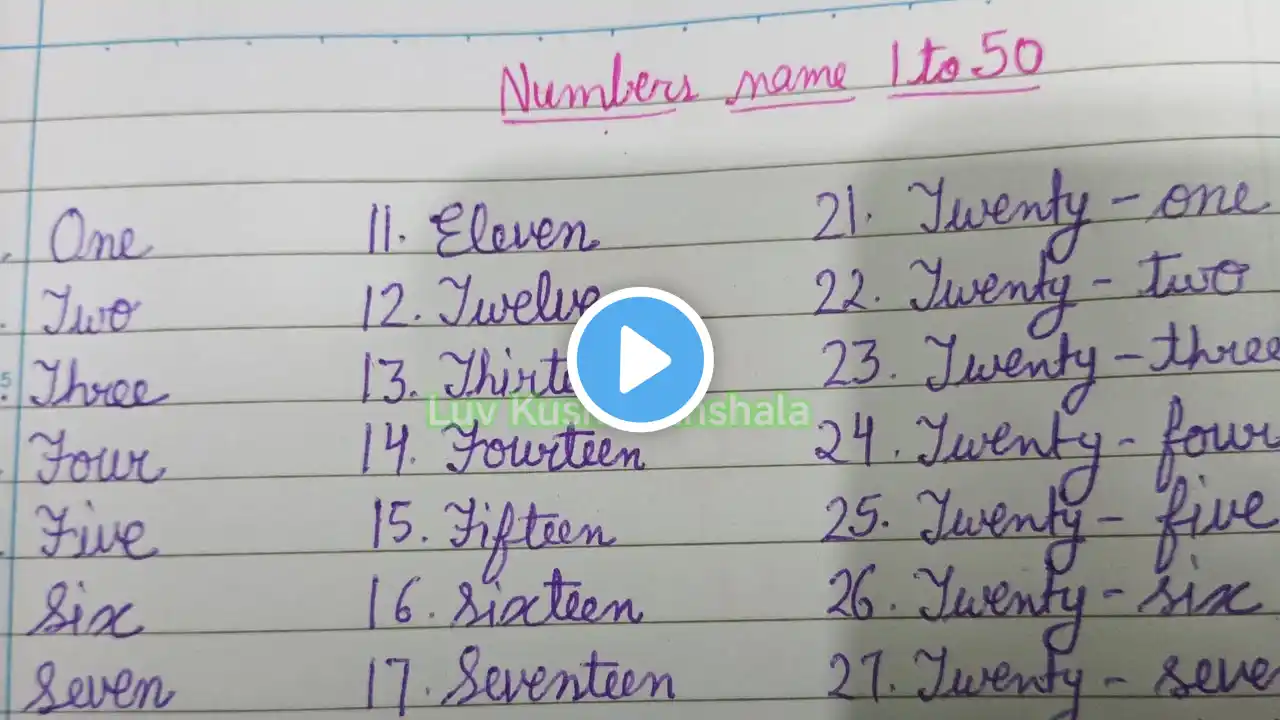 Numbers name 1 to 50
One 11. Eleven 21. Twenty - one
Two 12. Twelve 22. Twenty - two
Three 13. 23. Twenty - three
Luv
Four 14. Fourteen 24. Twenty - four
Five 15. Fifteen 25. Twenty - five
Six 16. Sixteen 26. Twenty - six
Seven 17. Seventeen 27. Twenty - seve